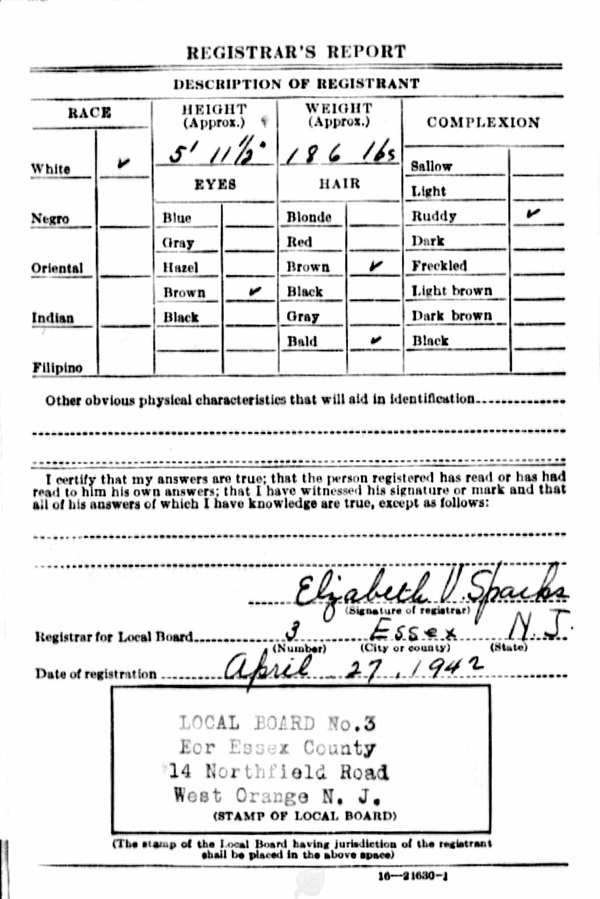 REGISTRAR'S REPORT
DESCRIPTION OF REGISTRANT
RACE
HEIGHT
(Approx.)
WEIGHT
(Approx.)
COMPLEXION
5' 11½"
186 lbs
White ✓
EYES
HAIR
Sallow
Light
Negro
Blue
Blonde
Ruddy ✓
Gray
Red
Dark
Oriental
Hazel
Brown ✓
Freckled
Brown ✓
Black
Light brown
Indian
Black
Gray
Dark brown
Bald ✓
Black
Filipino
Other obvious physical characteristics that will aid in identification
I certify that my answers are true; that the person registered has read or has had
read to him his own answers; that I have witnessed his signature or mark and that
all of his answers of which I have knowledge are true, except as follows:
Elizabeth V Sparks
(Signature of registrar)
Registrar for Local Board 3 Essex N.J.
(Number) (City or county) (State)
Date of registration April 27, 1942
LOCAL BOARD No.3
Eor Essex County
14 Northfield Road
West Orange N. J.
(STAMP OF LOCAL BOARD)
(The stamp of the Local Board having jurisdiction of the registrant
shall be placed in the above space)
16—21630-1